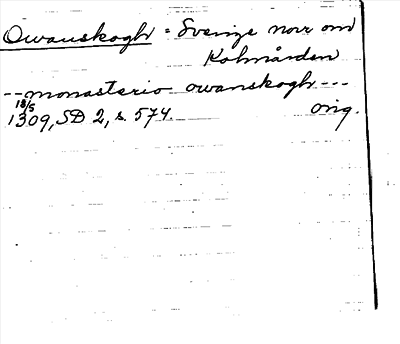 Owanskogh = Sverige norr om
Kolmården
-- monasterio owanskogh ---
18/5
1309, SD 2, s. 574. orig.